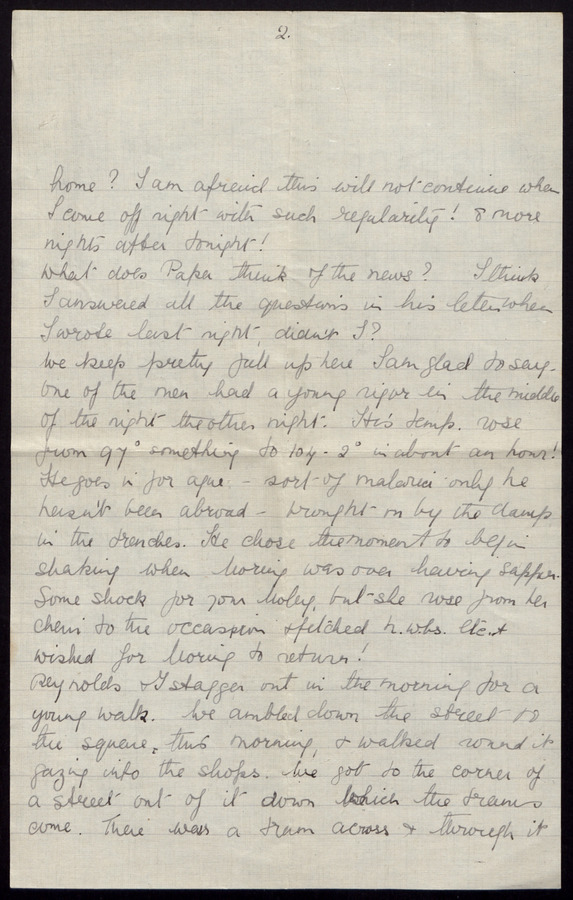 2.
home? I am afraid this will not continue when
I come off night with such regularity! 8 more
nights after tonight!
What does Papa think of the news? I think
I answered all the questions in his letter when
I wrote last night, didn't I?
We keep pretty full up here I am glad to say.
One of the men had a young rigor in the middle
of the night the other night. His temp. rose
from 97° something to 104-2° in about an hour!
He goes in for ague - sort of malaria only he
hasn't been abroad - brought on by the damp
in the trenches. He chose the moment to begin
shaking when was over having supper.
Some shock for your but she rose from her
chair to the occasion & fetched h.w.bs. etc. &
wished for to return!
Reynolds & I stagger out in the morning for a
young walk. We ambled down the street to
the square, this morning, & walked round it
gazing into the shops. We got to the corner of
a street out of it down which the trams
come. There was a tram across & through it